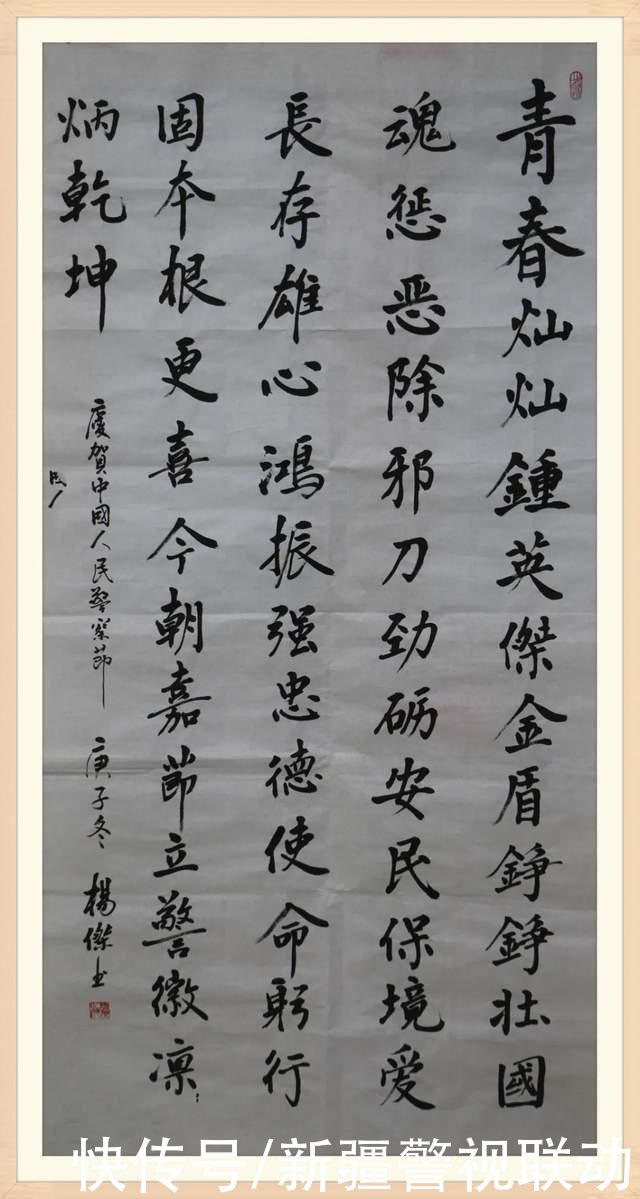 青春灿灿鍾英傑金盾錚錚壮國
魂惩恶除邪刀劲砺安民保境爱
長存雄心鴻振强忠德使命躬行
固本根更喜今朝嘉節立警徽凛〻
炳乾坤
慶賀中國人民警察節 庚子冬 楊傑书
快传号/新疆警视联动